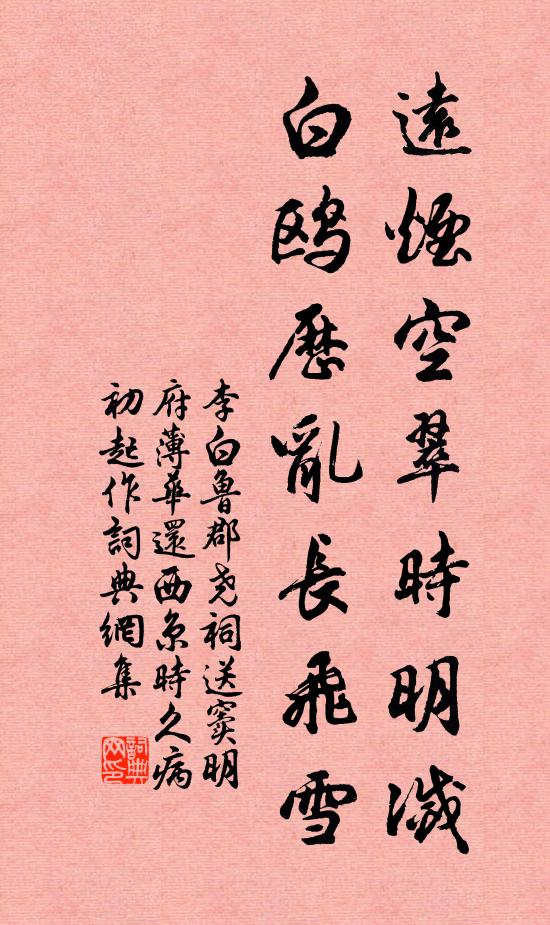 遠煙空翠時明滅
白鷗歷亂長飛雪
李白魯郡堯祠送竇明
府薄華還西京時久病
初起作詞典網集
詞典
网印